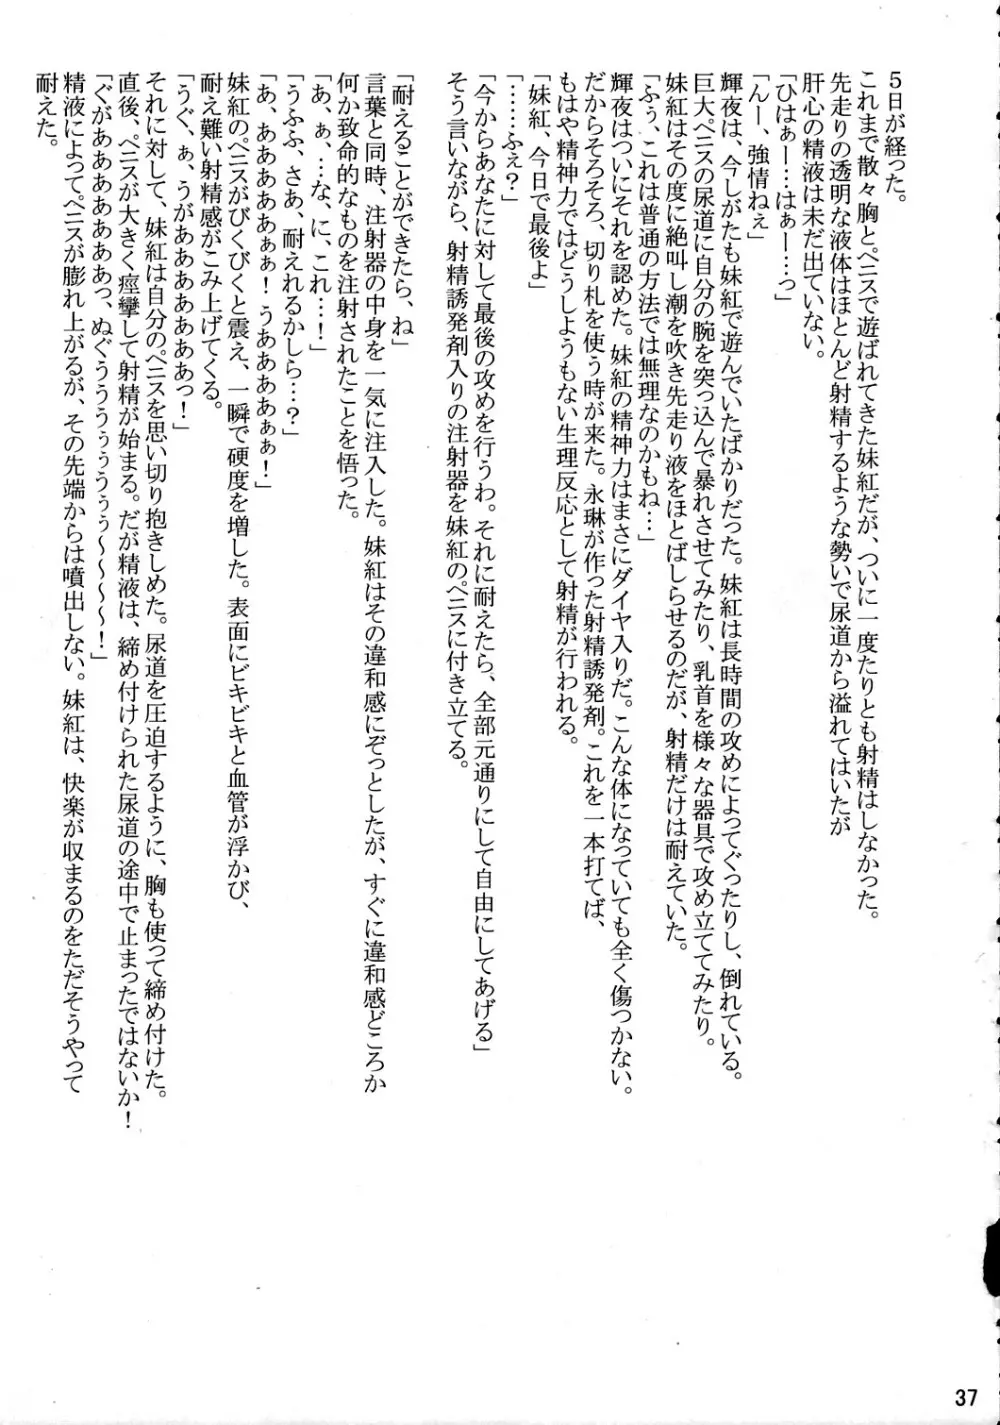 ５日が経った。
これまで散々胸とペニスで遊ばれてきた妹紅だが、ついに一度たりとも射精はしなかった。
先走りの透明な液体はほとんど射精するような勢いで尿道から溢れてはいたが
肝心の精液は未だ出ていない。
「ひはぁー…はぁー…っ」
「んー、強情ねぇ」
輝夜は、今しがたも妹紅で遊んでいたばかりだった。妹紅は長時間の攻めによってぐったりし、倒れている。
巨大ペニスの尿道に自分の腕を突っ込んで暴れさせてみたり、乳首を様々な器具で攻め立ててみたり。
妹紅はその度に絶叫し潮を吹き先走り液をほとばしらせるのだが、射精だけは耐えていた。
「ふぅ、これは普通の方法では無理なのかもね…」
輝夜はついにそれを認めた。妹紅の精神力はまさにダイヤ入りだ。こんな体になっていても全く傷つかない。
だからそろそろ、切り札を使う時が来た。永琳が作った射精誘発剤。これを一本打てば、
もはや精神力ではどうしようもない生理反応として射精が行われる。
「妹紅、今日で最後よ」
「……ふぇ？」
「今からあなたに対して最後の攻めを行うわ。それに耐えたら、全部元通りにして自由にしてあげる」
そう言いながら、射精誘発剤入りの注射器を妹紅のペニスに付き立てる。
「耐えることができたら、ね」
言葉と同時、注射器の中身を一気に注入した。妹紅はその違和感にぞっとしたが、すぐに違和感どころか
何か致命的なものを注射されたことを悟った。
「あ、ぁ、…な、に、これ…！」
「うふふ、さあ、耐えれるかしら…？」
「あ、ああああぁぁ！うああああぁぁ！」
妹紅のペニスがびくびくと震え、一瞬で硬度を増した。表面にビキビキと血管が浮かび、
耐え難い射精感がこみ上げてくる。
「うぐ、ぁ、うがああああああっ！」
それに対して、妹紅は自分のペニスを思い切り抱きしめた。尿道を圧迫するように、胸も使って締め付けた。
直後、ペニスが大きく痙攣して射精が始まる。だが精液は、締め付けられた尿道の途中で止まったではないか！
「ぐがああああああああっ、ぬぐうううぅぅうぅぅ～～～～！」
精液によってペニスが膨れ上がるが、その先端からは噴出しない。妹紅は、快楽が収まるのをただそうやって
耐えた。
37